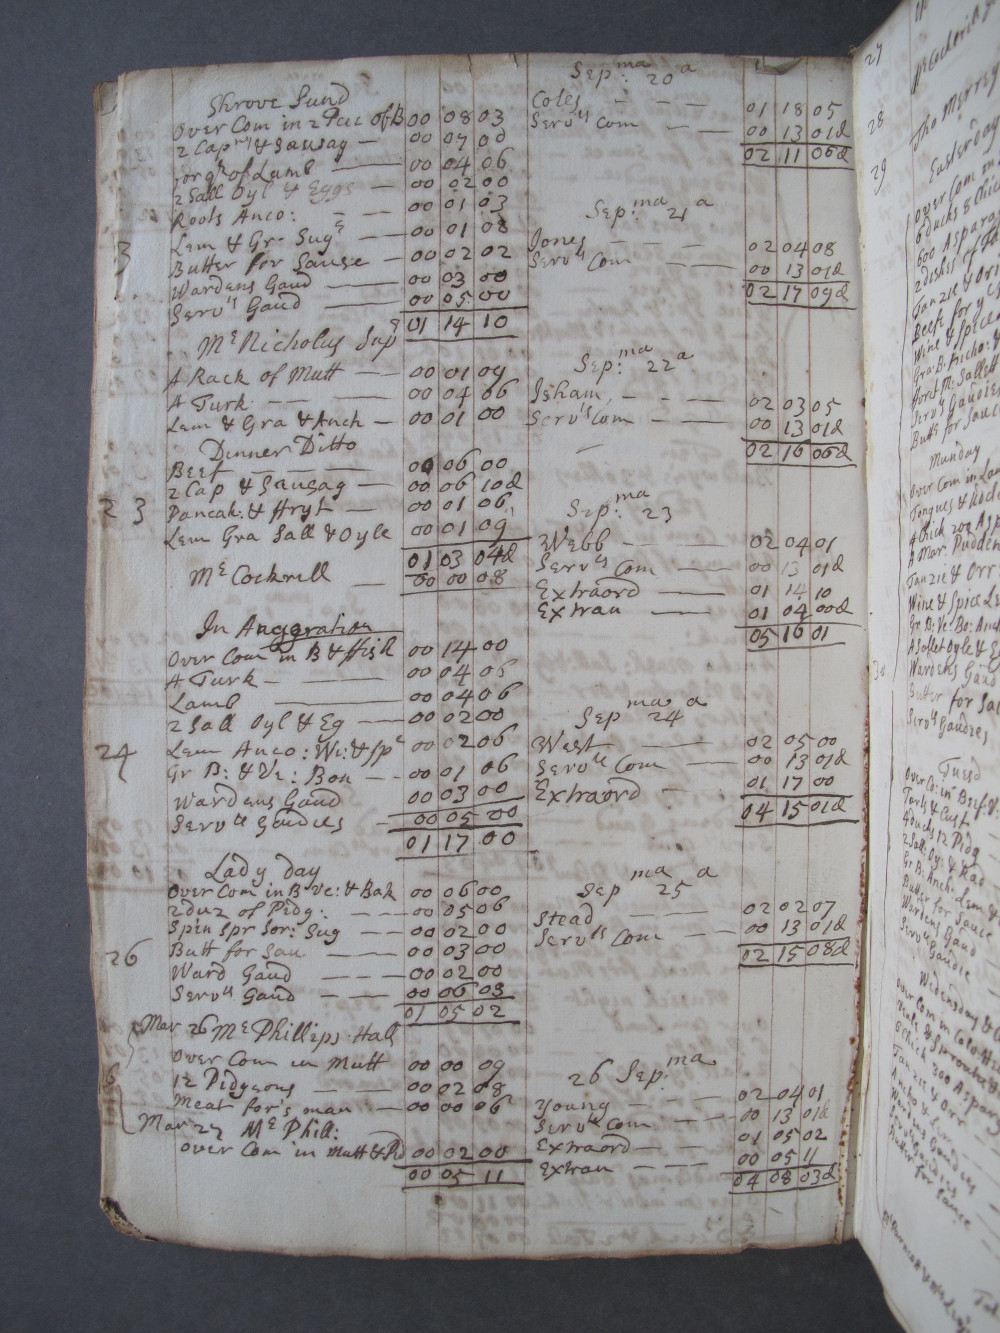 Shrove Sund
Over Com in 2 Pec of B 00 08 03
2 Capns & Sausag 00 07 00
for qr of Lamb 00 04 06
2 Sall Oyl & Eggs 00 02 00
Roots Anco: 00 01 03
Lem & Gr Sugr 00 01 08
3
Butter for Sause 00 02 02
Wardens Gaud 00 03 00
Servts Gaud 00 05 00
01 14 10
Mr Nicholus Supr
A Rack of Mutt 00 01 09
A Turk 00 04 06
Lem & Gra & Anch 00 01 00
Dinner Ditto
Beef 00 06 00
2 Cap & Sausag 00 06 10d
23
Pancak: & ffryt 00 01 06
Lem Gra Sall & Oyle 00 01 09
01 03 04d
Mr Cockrill 00 00 08
In Anggration
Over Com in B & ffish 00 14 00
A Turk 00 04 06
Lamb 00 04 06
2 Sall Oyl & Eg 00 02 00
24
Lem Anco: Wi: & Spc 00 02 06
Gr B: & Ve: Bon 00 01 06
Wardens Gaud 00 03 00
Servts Gaudies 00 05 00
01 17 00
Lady day
Over Com in B Ve: & Bak 00 06 00
2 duz of Pidg: 00 05 06
Spin Spr Sor: Sug 00 02 00
26
Butt for Sau 00 03 00
Ward Gaud 00 02 00
Servts Gaud 00 06 03
01 05 02
Mar 26 Mr Phillips Hall
Over Com in Mutt 00 00 09
12 Pidgeons 00 02 08
Meat for's man 00 00 06
Mar 27 Mr Phill:
over Com in Mutt & Pid 00 02 00
00 05 11
Sep:ma 20a
Coles 01 18 05
Servts Com 00 13 01d
02 11 06d
Sep:ma 21a
Jones 02 04 08
Servts Com 00 13 01d
02 17 09d
Sep:ma 22a
Isham 02 03 05
Servts Com 00 13 01d
02 16 06d
Sep:ma 23
Webb 02 04 01
Servts Com 00 13 01d
Extraord 01 14 10
Extran 01 04 00d
05 16 01
Sepma 24a
West 02 05 00
Servts Com 00 13 01d
Extraord 01 17 00
04 15 01d
Sepma 25a
Stead 02 02 07
Servts Com 00 13 01d
02 15 08d
26 Sep:ma
Young 02 04 01
Servts Com 00 13 01d
Extraord 01 05 02
Extran 00 05 11
04 08 03d
27
28
Tho Merry
29
Easterday
over Com in
6 ducks 8 Chic
600 Aspara
2 dishes of
Tanzie & Orr
Beefe for ye
Wine & Spice
Gra: B: Ancho:
Servts Gaudies
Butts for Saus
Munday
Over Com in Lam
Tongues &
A Mar: Pudden
Tanzie & Orr
Wine & Spice Le
30
Wardens Gaud
Butter for Sau
Servts Gaudies
Tuesd
Over Co: in Beef: V
Tarts & Cust
4 ducks 12 Pidg
2 Sall: Oy: & Rad
Gr B: Anch: Lem &
Butter for Sauce
Wardens Gaud
Servts Gaudie
Widensday
over Com in
6 Chick 300 Aspar
Tanzie & Orr
Ancho & Lem
Ward Gaudies
Serv Gaudies
Butter for Sauce